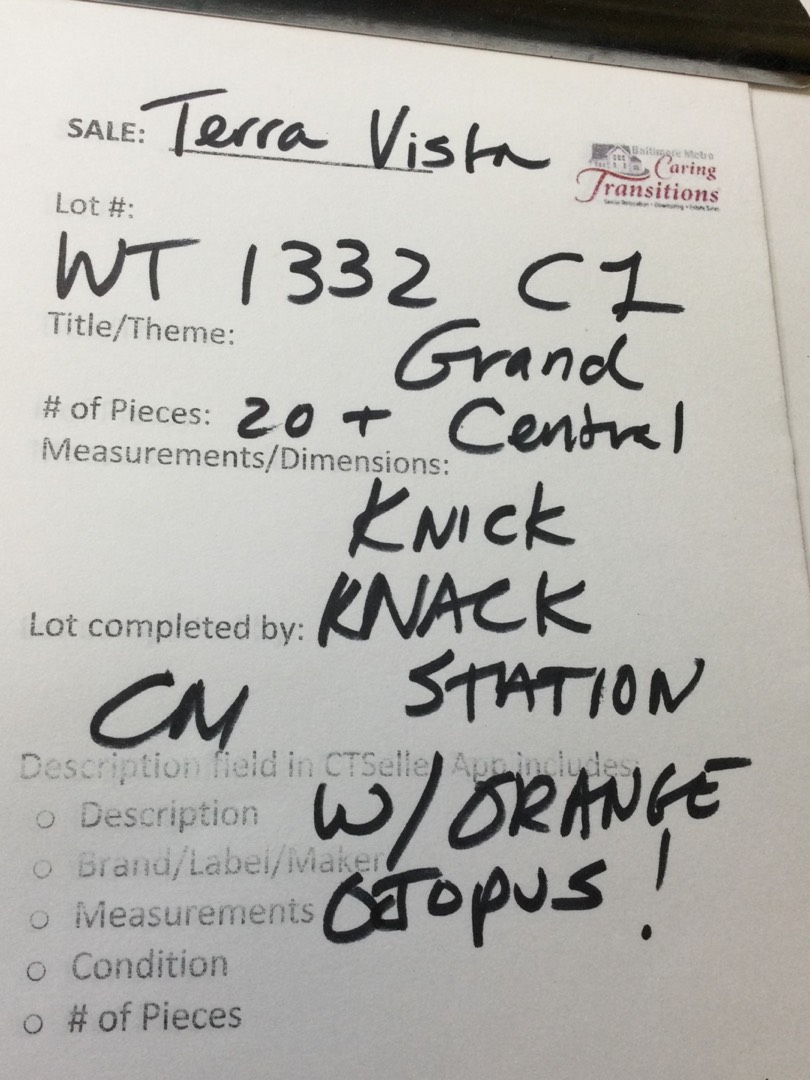 SALE: Terra Vista
Baltimore Metro
Caring
Transitions
Lot #:
WT 1332 C1
Title/Theme:
Grand
# of Pieces: 20+ Central
Measurements/Dimensions:
KNICK
Lot completed by: KNACK
CM STATION
Description field in CTSeller App includes:
○ Description W/ORANGE
○ Brand/Label/Maker
○ Measurements OCTOPUS!
○ Condition
○ # of Pieces